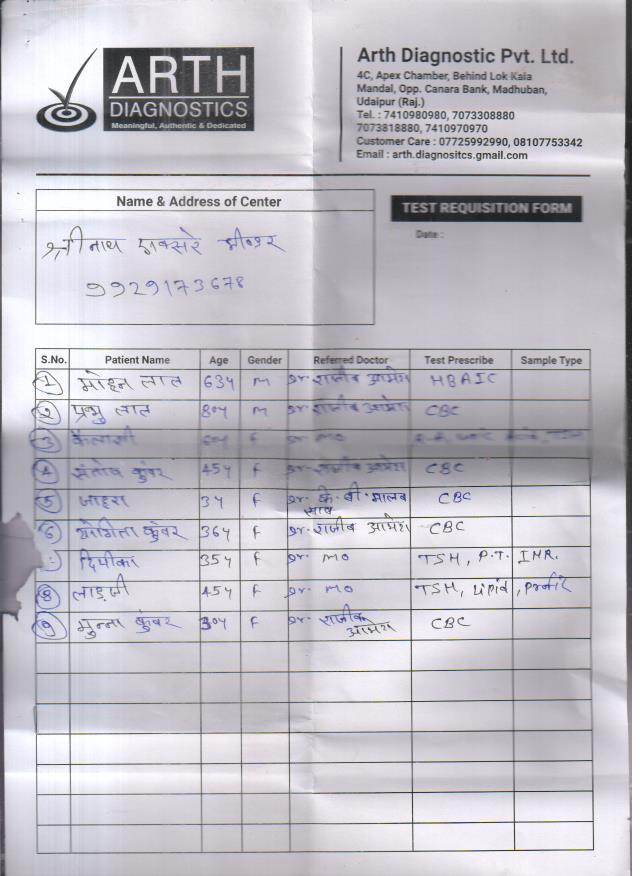 ARTH
DIAGNOSTICS
Meaningful, Authentic & Dedicated
Arth Diagnostic Pvt. Ltd.
4C, Apex Chamber, Behind Lok Kala
Mandal, Opp. Canara Bank, Madhuban,
Udaipur (Raj.)
Tel. : 7410980980, 7073308880
7073818880, 7410970970
Customer Care : 07725992990, 08107753342
Email : arth.diagnositcs.gmail.com
Name & Address of Center
TEST REQUISITION FORM
Date :
श्रीनाथ एक्सरे भीण्डर
9929173678
S.No. Patient Name Age Gender Referred Doctor Test Prescribe Sample Type
1 मोहन लाल 63y M Dr. राजीव आमेरा HBAIC
2 प्रभु लाल 80y M Dr. राजीव आमेरा CBC
3 कैलाशी 60y F Dr. MO
4 संतोष कुंवर 45y F Dr. राजीव आमेरा CBC
5 जाहरा 3y F Dr. के. वी. मालव CBC
साब
6 योगिता कुंवर 36y F Dr. राजीव आमेरा CBC
दिपीका 35y F Dr. MO TSH, P.T. INR.
8 लाडजी 45y F Dr. MO TSH, Lipid, Profile
9 मुन्ना कुंवर 30y F Dr. राजीव CBC
आमेरा